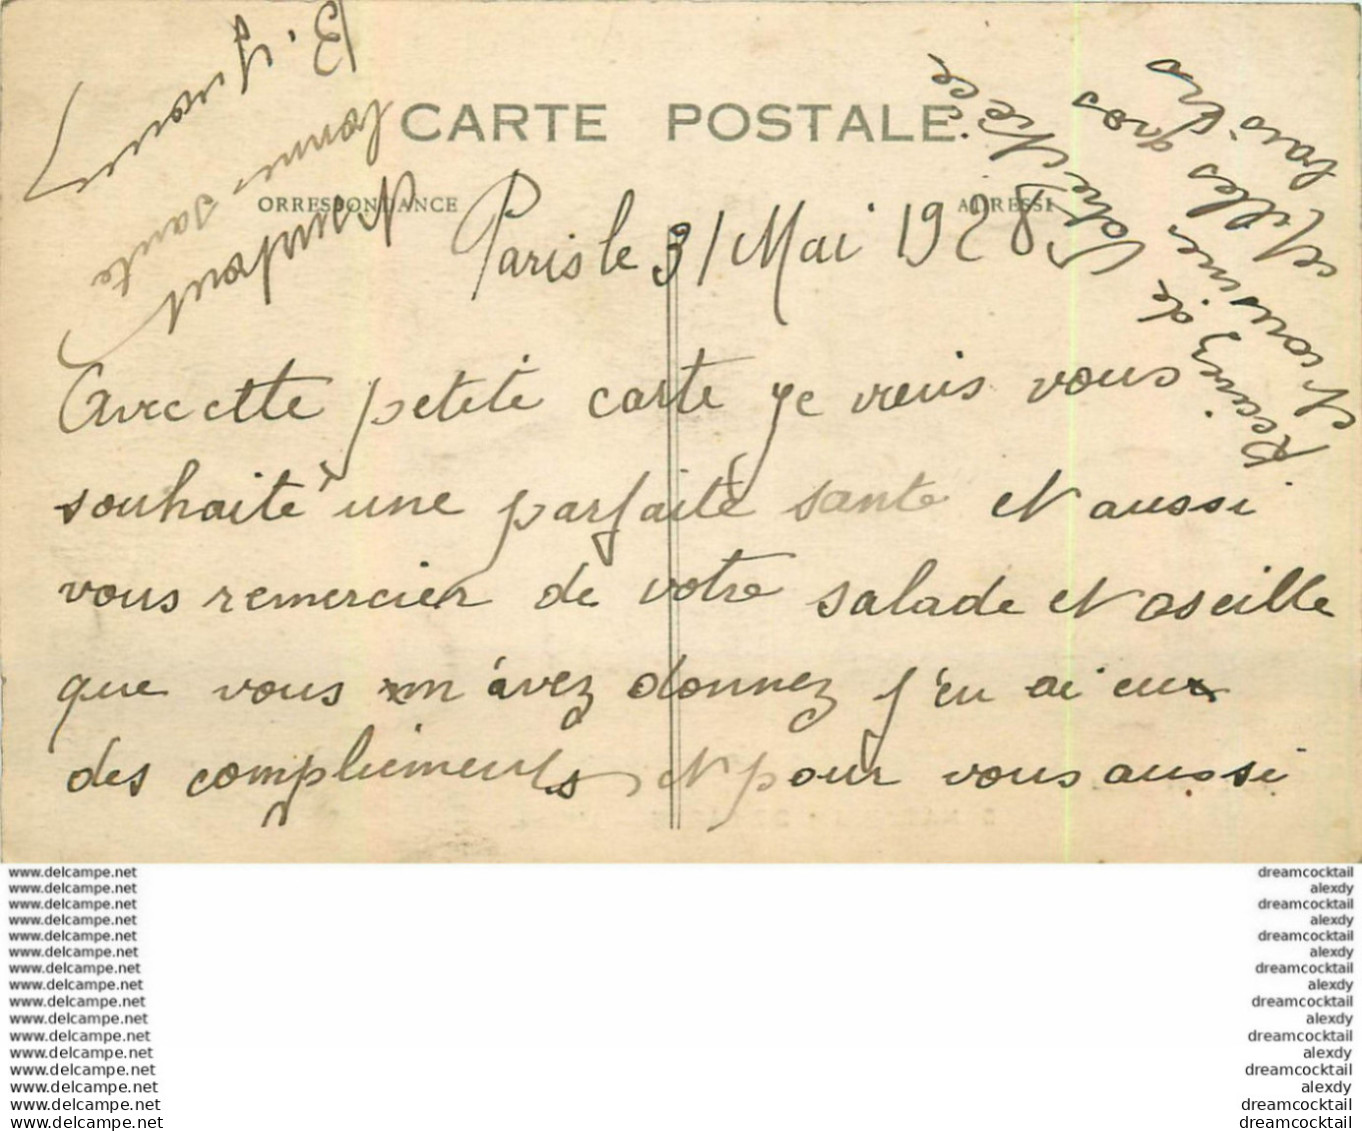 CARTE POSTALE
ORRESPONDANCE
ADRESSE
Paris le 31 Mai 1928
Avec cette petite carte je viens vous
souhaité une parfaite sante et aussi
vous remercier de votre salade et oseille
que vous m'avez donnez j'en ai eux
des compliements et pour vous aussi
Recivez de Votre Nièce
et cousine
et filles gros
baisers
bonne sante
www.delcampe.net
www.delcampe.net
www.delcampe.net
www.delcampe.net
www.delcampe.net
www.delcampe.net
www.delcampe.net
www.delcampe.net
www.delcampe.net
www.delcampe.net
www.delcampe.net
www.delcampe.net
www.delcampe.net
www.delcampe.net
www.delcampe.net
www.delcampe.net
dreamcocktail
alexdy
dreamcocktail
alexdy
dreamcocktail
alexdy
dreamcocktail
alexdy
dreamcocktail
alexdy
dreamcocktail
alexdy
dreamcocktail
alexdy
dreamcocktail
dreamcocktail